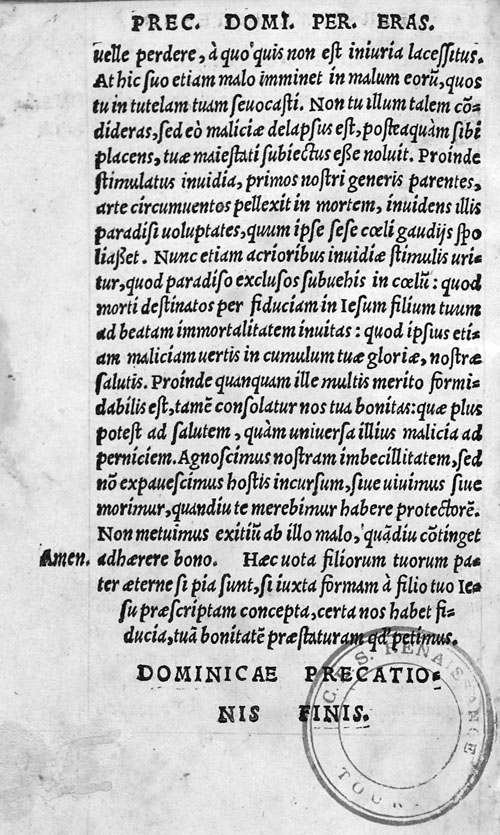 PREC. DOMI. PER. ERAS.
uelle perdere, à quo quis non est iniuria lacessitus.
At hic suo etiam malo imminet in malum eorũ, quos
tu in tutelam tuam seuocasti. Non tu illum talem cõ-
dideras, sed eò maliciæ delapsus est, posteaquàm sibi
placens, tuæ maiestati subiectus esse noluit. Proinde
stimulatus inuidia, primos nostri generis parentes,
arte circumuentos pellexit in mortem, inuidens illis
paradisi uoluptates, quum ipse sese cœli gaudijs spo
liasset. Nunc etiam acrioribus inuidiæ stimulis uri-
tur, quod paradiso exclusos subuehis in cœlũ: quod
morti destinatos per fiduciam in Iesum filium tuum
ad beatam immortalitatem inuitas: quod ipsius eti-
am maliciam uertis in cumulum tuæ gloriæ, nostræ
salutis. Proinde quanquam ille multis merito formi-
dabilis est, tamẽ consolatur nos tua bonitas: quæ plus
potest ad salutem, quàm uniuersa illius malicia ad
perniciem. Agnoscimus nostram imbecillitatem, sed
nõ expauescimus hostis incursum, siue uiuimus siue
morimur, quandiu te merebimur habere protectorẽ.
Non metuimus exitiũ ab illo malo, quãdiu cõtinget
Amen. adhærere bono. Hæc uota filiorum tuorum pa-
ter æterne si pia sunt, si iuxta formam à filio tuo Ie-
su præscriptam concepta, certa nos habet fi-
ducia, tuã bonitatẽ præstaturam qd' petimus.
DOMINICAE PRECATIO-
NIS FINIS.
C. E. S. RENAISSANCE
TOURS